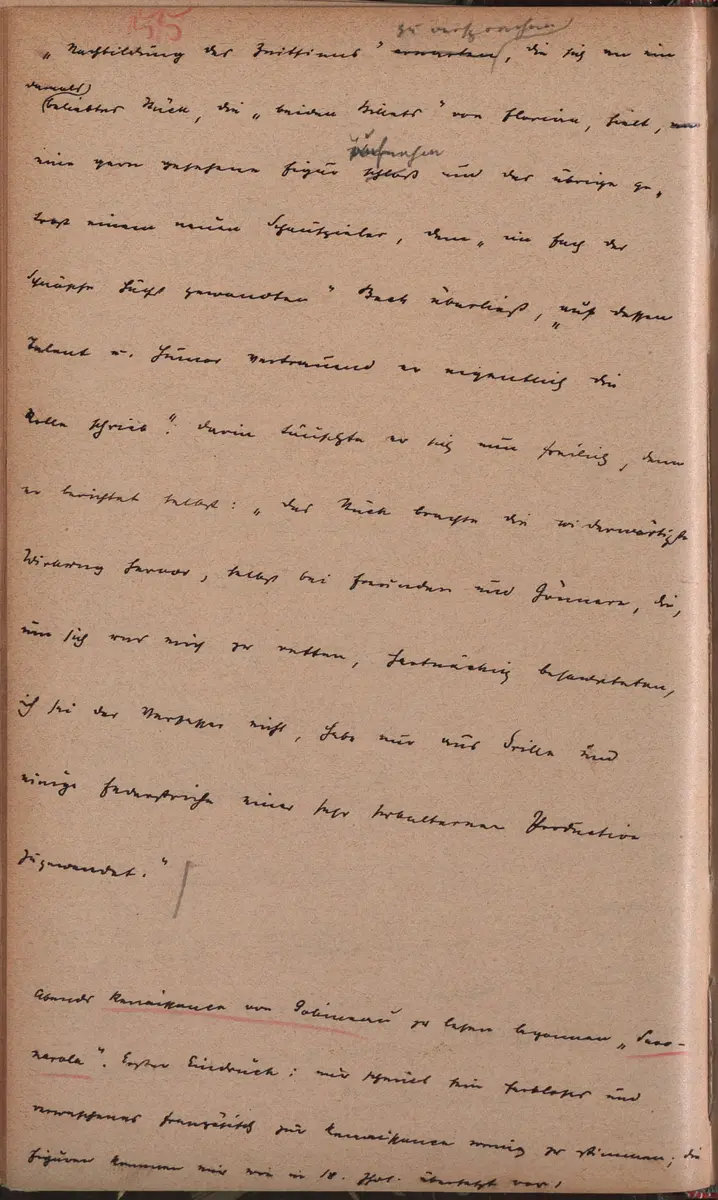 zu versprechen
„Nachbildung des Zeitsinns" erwarten, die sich an ein
damals
beliebtes Stück, die „beiden Billets" von Florian, hielt,
eine gern gesehene Figur schloß und das übrige ge„
trost einem neuen Schauspieler, dem „im Fach der
Schnäpse höchst gewandten" Beck überließ, „auf dessen
Talent u. Humor vertrauend er eigentlich die
Rolle schrieb": darin täuschte er sich nun freilich, denn
er berichtet selbst: „das Stück brachte die widerwärtigste
Wirkung hervor, selbst bei Freunden und Gönnern, die,
um sich und mich zu retten, hartnäckig behaupteten,
ich sei der Verfasser nicht, habe nur aus Grille und
einige Federstriche einer sehr subalternen Production
zugewendet."
Abends Renaissance von Gobineau zu lesen begonnen „Savo-
narola". Erster Eindruck: mir scheint sein farbloses und
verwaschenes Französisch zur Renaissance wenig zu stimmen; die
Figuren kommen mir wie in 18. Jhdt. übersetzt vor!